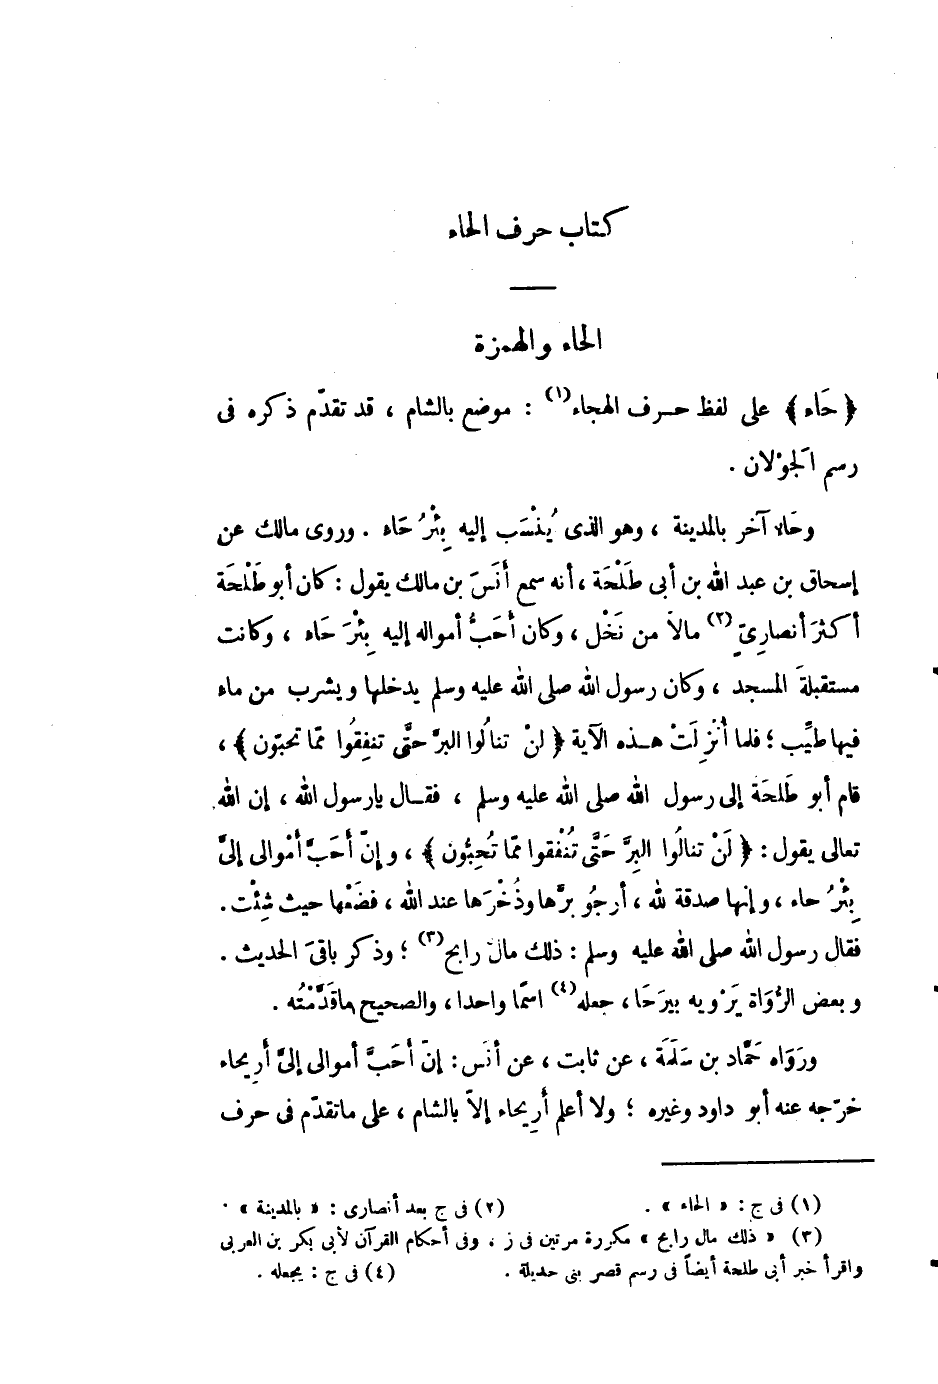 كتاب حرف الحاء
الحاء والهمزة
﴿حَاء﴾ على لفظ حرف الهجاء(١) : موضع بالشام ، قد تقدّم ذكره فى
رسم الجَوْلان .
وحَاء آخر بالمدينة ، وهو الذى يُنْسَب إليه بِئْرُ حَاء . وروى مالك عن
إسحاق بن عبد الله بن أبى طَلْحَة ، أنه سمع أَنَسَ بن مالك يقول : كان أبو طَلْحَة
أكثرَ أنصارِىّ(٢) مالاً من نَخْل ، وكان أَحَبُّ أمواله إليه بِئْرَ حَاء ، وكانت
مستقبلةَ المسجد ، وكان رسول الله صلى الله عليه وسلم يدخلها ويشرب من ماء
فيها طيِّب ؛ فلما أُنْزِلَتْ هذه الآية ﴿ لنْ تنالُوا البرَّ حتَّى تنفِقُوا ممّا تحبّون ﴾ ،
قام أبو طَلحَة إلى رسول الله صلى الله عليه وسلم ، فقال يارسول الله ، إن الله
تعالى يقول : ﴿ لَنْ تنالُوا البِرَّ حَتَّى تُنْفقوا ممّا تُحِبُّون ﴾ ، وإنّ أَحَبَّ أمْوالى إلىَّ
بِئْرُ حاء ، وإنها صدقة لله ، أرجُو برَّها وذُخْرَها عند الله ، فضَعْها حيث شِئْت .
فقال رسول الله صلى الله عليه وسلم : ذلك مالٌ رابح(٣) ؛ وذكر باقىَ الحديث .
وبعض الرُّوَاة يَرْويه بيرَحَا ، جعله(٤) اسمًا واحدا ، والصحيح ماقَدَّمْتُه .
ورَوَاه حَمَّاد بن سَلَمَة ، عن ثابت ، عن أنَس : إنّ أحَبَّ أموالى إلىَّ أَرِيحاء
خرّجه عنه أبو داود وغيره ؛ ولا أعلم أَرِيحاء إلاّ بالشام ، على ماتقدّم فى حرف
(١) فى ج : « الحاء » . (٢) فى ج بعد أنصارى : « بالمدينة » .
(٣) « ذلك مال رابح » مكررة مرتين فى ز ، وفى أحكام القرآن لأبى بكر بن العربى
واقرأ خبر أبى طلحة أيضاً فى رسم قصر بنى حديلة . (٤) فى ج : يجعله .